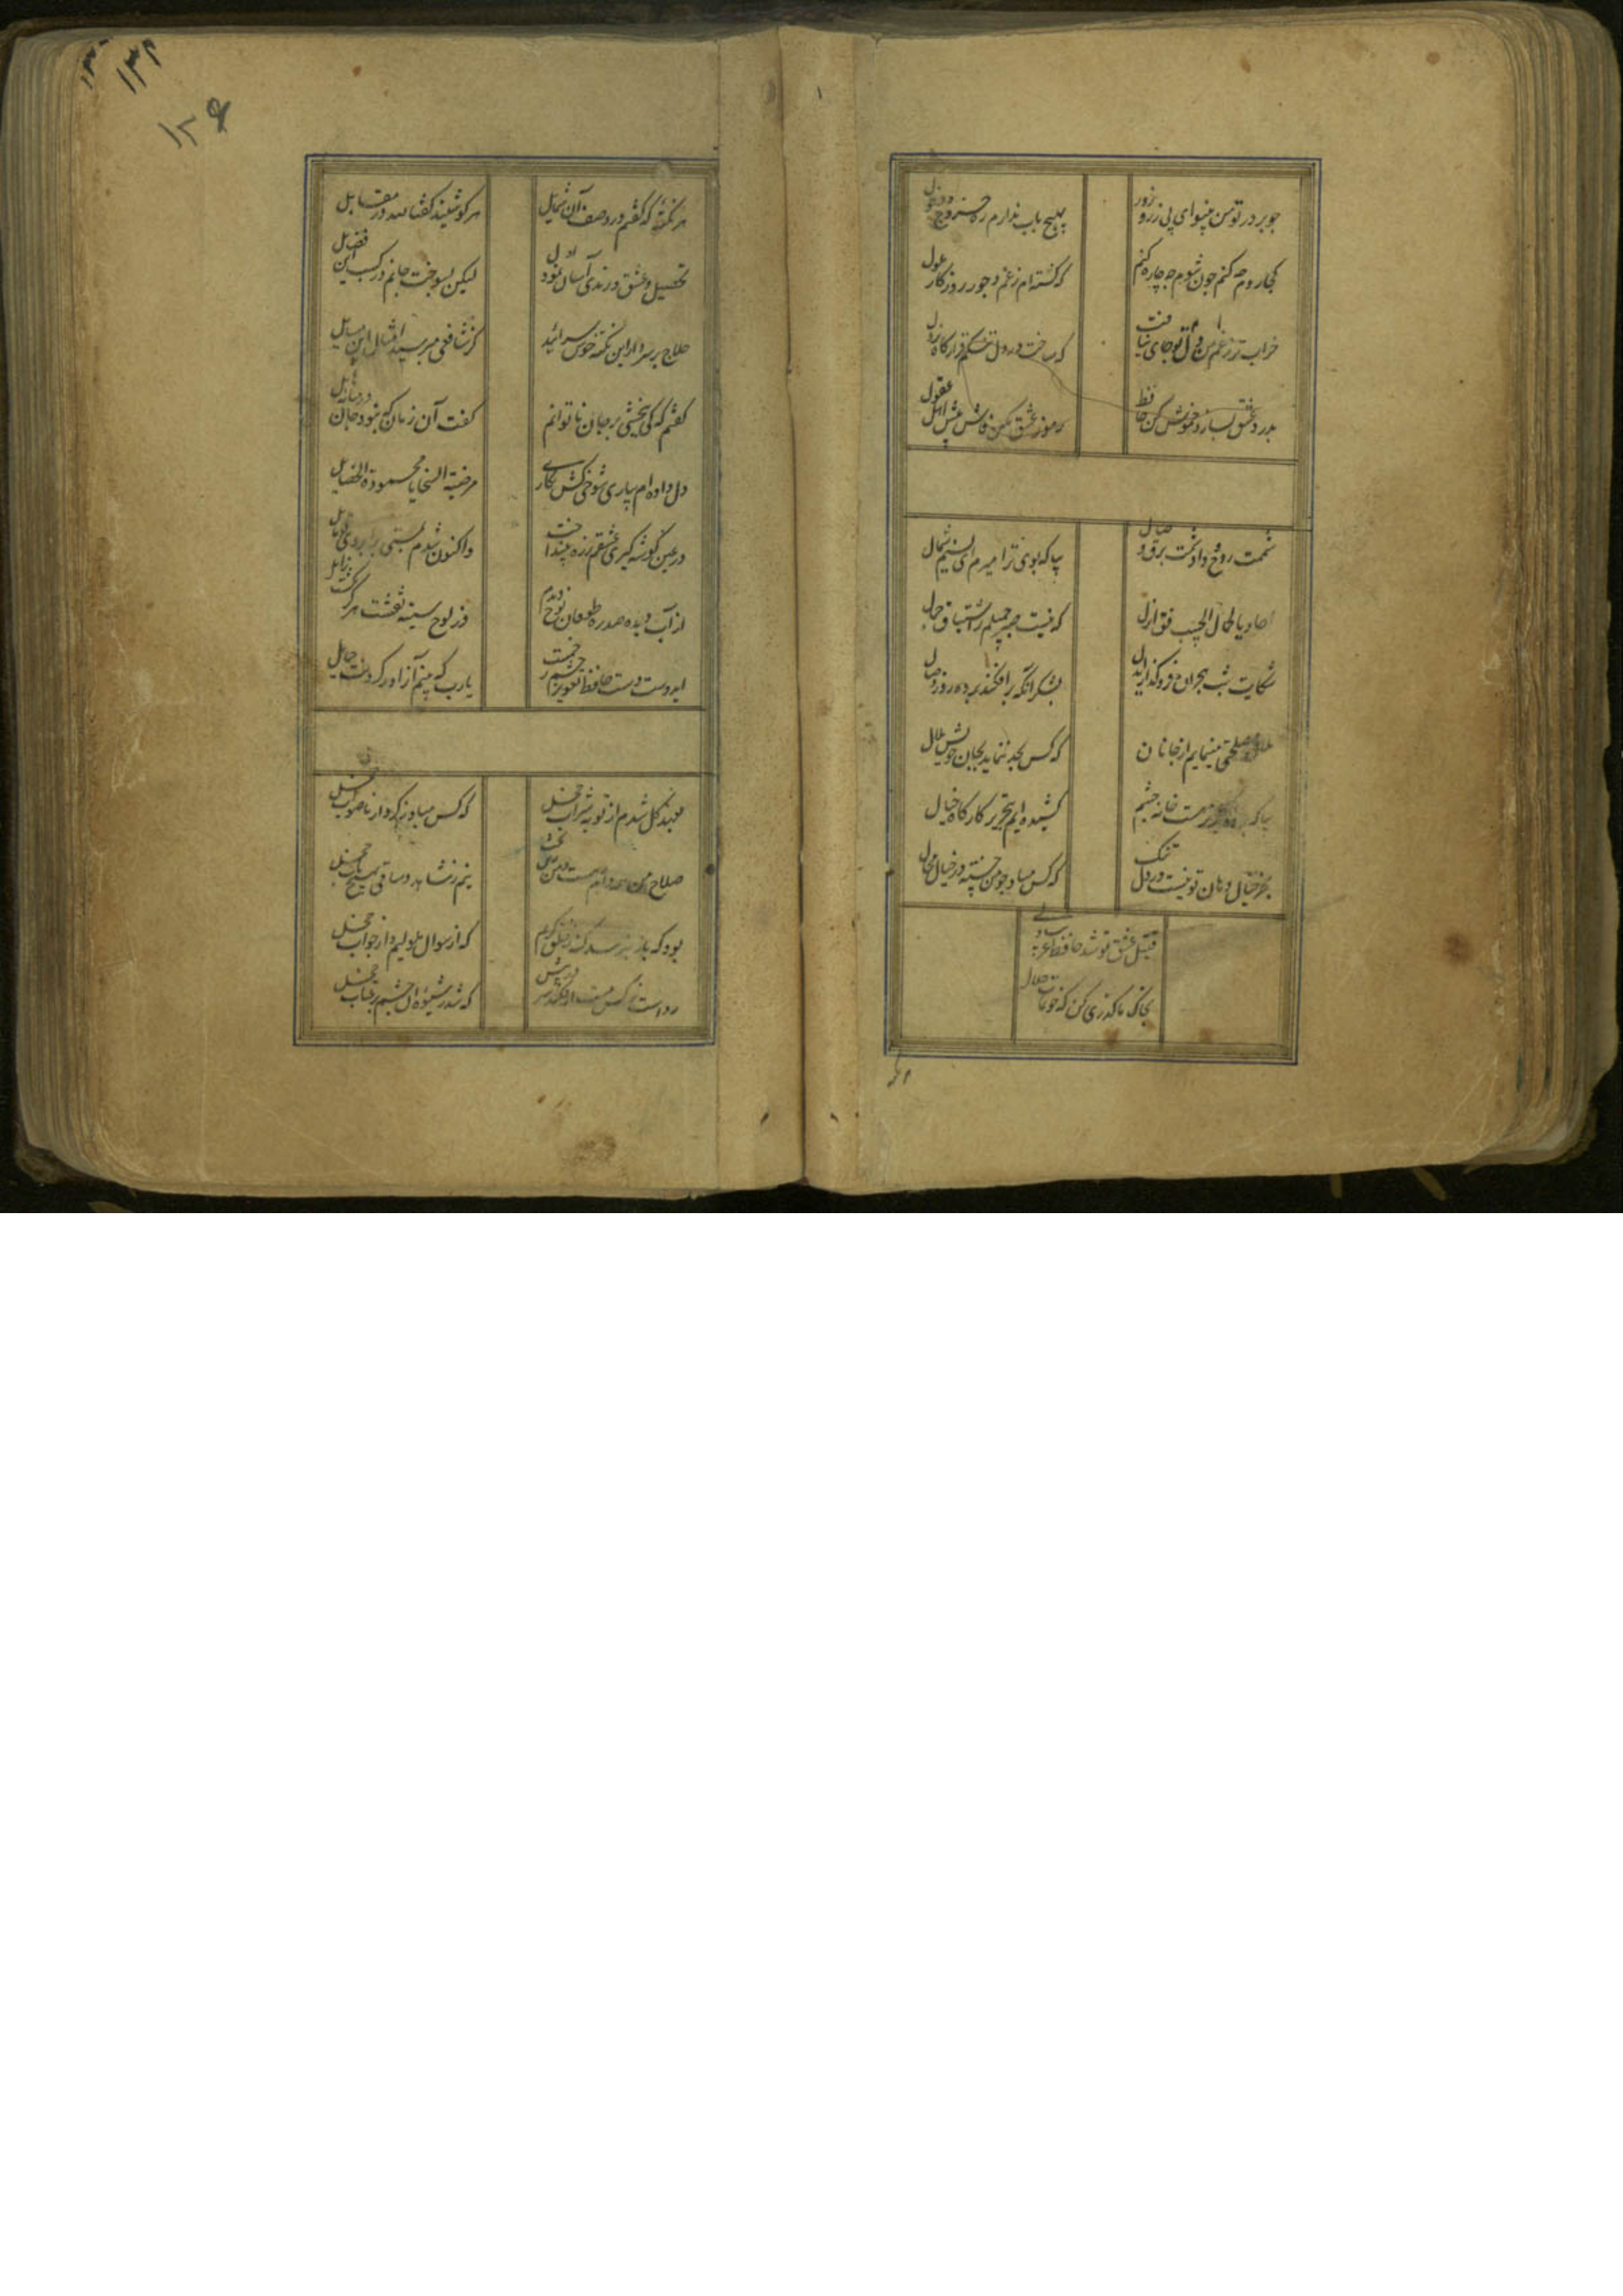 چو بر در تو من بینوای بی زر و زور
بهیچ باب ندارم ره خروج و دخول
کجا روم چه کنم چون شوم چه چاره کنم
که گشته‌ام ز غم و جور روزگار ملول
خراب‌تر ز دل من غم تو جای نیافت
که ساخت در دل تنگم قرارگاه نزول
بدرد عشق بساز و خموش کن حافظ
رموز عشق مکن فاش پیش اهل عقول
شممت روح وداد و شمت برق وصال
بیا که بوی ترا میرم ای نسیم شمال
احادیا بجمال الحبیب قف و انزل
که نیست صبر جمیلم ز اشتیاق جمال
شکایت شب هجران فروگذار ای دل
بشکر آنکه برافکند پرده روز وصال
ملال مصلحتی مینمایم از جانان
که کس بجد ننماید بجان خویش ملال
بیا که پرده گلریز هفت خانه چشم
کشیده‌ایم بتحریر کارگاه خیال
بجز خیال دهان تو نیست در دل تنگ
که کس مباد چو من خسته در خیال محال
قتیل عشق تو شد حافظ غریب ولی
بخاک ما گذری کن که خونمات حلال
۱۳۴
۱۳۶
هر نکته که گفتم در وصف آن شمایل
هر کو شنید گفتا لله در قایل
تحصیل عشق و رندی آسان نمود اول
لیکن بسوخت جانم در کسب این فضایل
حلاج بر سر دار این نکته خوش سراید
کز شافعی مپرسید امثال این مسایل
گفتم که کی ببخشی بر جان ناتوانم
گفت آن زمان که نبود جان در میانه حایل
دل داده‌ام بیاری شوخی کشی نگاری
مرضیة السجایا محمودة الخصایل
در عین گوشه‌گیری عشقم ز ره بینداخت
واکنون شدم بمستی بر ابروی تو مایل
از آب دیده صد ره طوفان نوح دیدم
وز لوح سینه نقشت هرگز نگشت زایل
ای دوست دست حافظ تعویذ چشم زخمست
یا رب که بینم آنرا در گردنت حمایل
بعهد گل شدم از توبه شراب خجل
که کس مباد ز کردار ناصواب خجل
صلاح من همه دام رهست و من زین بحث
نیم ز شاهد و ساقی بهیچ باب خجل
بود که یار نپرسد گنه ز خلق کریم
که از سوال ملولیم و از جواب خجل
رواست نرگس مست ار فکند سر در پیش
که شد ز شیوه آن چشم پرعتاب خجل